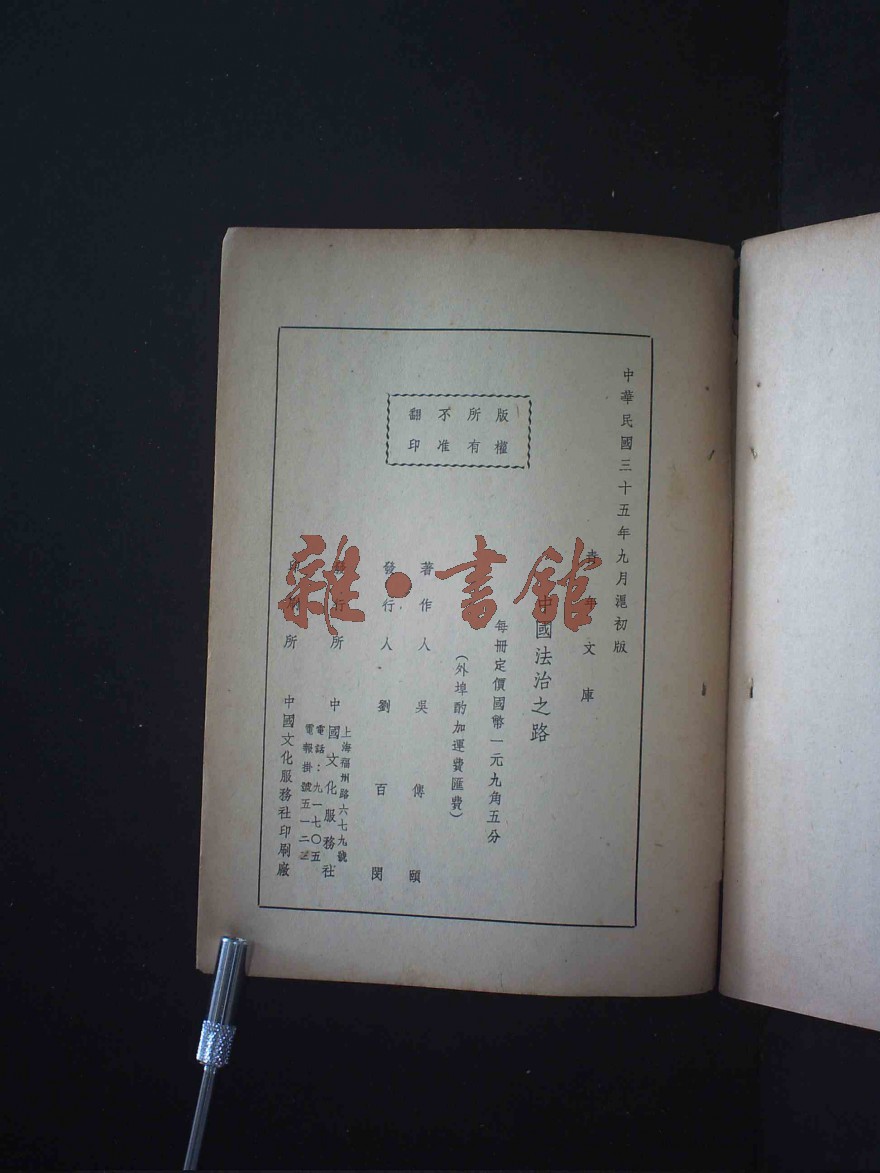 中華民國三十五年九月滬初版
青年文庫
中國法治之路
每冊定價國幣一元九角五分
（外埠酌加運費匯費）
版權
所有
不准
翻印
著作人 吳傳頤
發行人 劉百閔
發行所 中國文化服務社
上海福州路六七九號
電話：九一七〇五
電報掛號五一二三
印刷所 中國文化服務社印刷廠
雜·書館